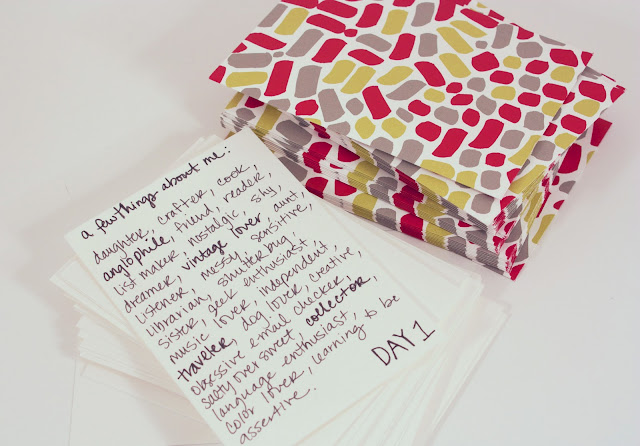 a few things about me:
daughter, crafter, cook,
anglophile, friend, reader,
list maker, nostalgic, shy,
dreamer, vintage lover, aunt,
listener, messy, sensitive,
librarian, shutterbug,
sister, geek enthusiast,
music lover, independent,
traveler, dog lover, creative,
obsessive email checker,
salty over sweet, collector,
language enthusiast,
color lover, learning to be
assertive.
DAY 1